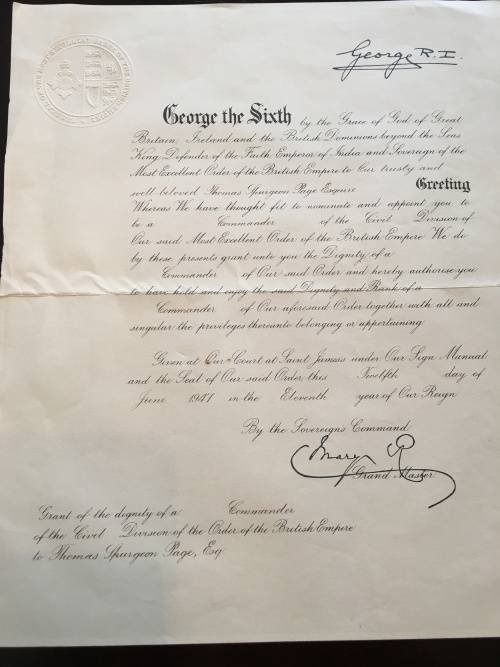 George R.I.
George the Sixth by the Grace of God of Great
Britain, Ireland and the British Dominions beyond the Seas
King, Defender of the Faith Emperor of India and Sovereign of the
Most Excellent Order of the British Empire to Our trusty and
well beloved Thomas Spurgeon Page Esquire Greeting
Whereas We have thought fit to nominate and appoint you to
be a Commander of the Civil Division of
Our said Most Excellent Order of the British Empire We do
by these presents grant unto you the Dignity of a
Commander of Our said Order and hereby authorise you
to have hold and enjoy the said Dignity and Rank of a
Commander of Our aforesaid Order together with all and
singular the privileges thereunto belonging or appertaining.
Given at Our Court at Saint James's under Our Sign Manual
and the Seal of Our said Order, this Twelfth day of
June 1947 in the Eleventh year of Our Reign
By the Sovereign's Command
Mary R
Grand Master
Grant of the dignity of a Commander
of the Civil Division of the Order of the British Empire
to Thomas Spurgeon Page, Esq